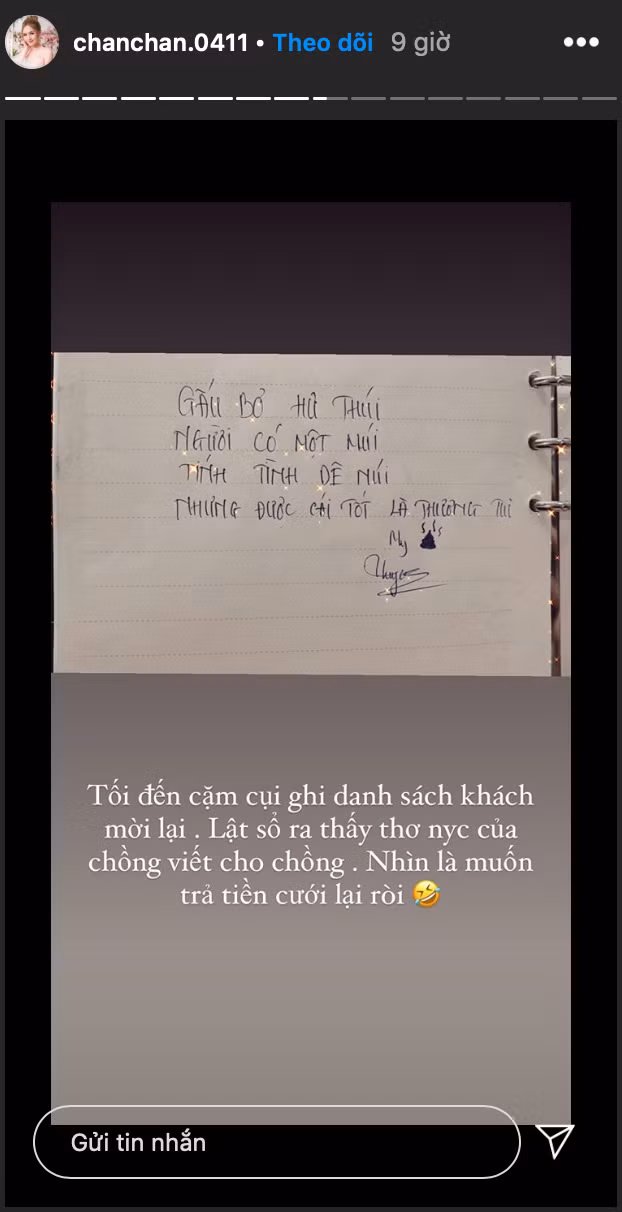 chanchan.0411 • Theo dõi 9 giờ
GẤU BỞ HƯ THÚI
NGƯỜI CÓ MỘT MÚI
TÍNH TÌNH DÊ NÚI
NHƯNG ĐƯỢC CÁI TỐT LÀ THƯƠNG TUI
Tối đến cặm cụi ghi danh sách khách
mời lại . Lật sổ ra thấy thơ nyc của
chồng viết cho chồng . Nhìn là muốn
trả tiền cưới lại ròi 🤣
Gửi tin nhắn